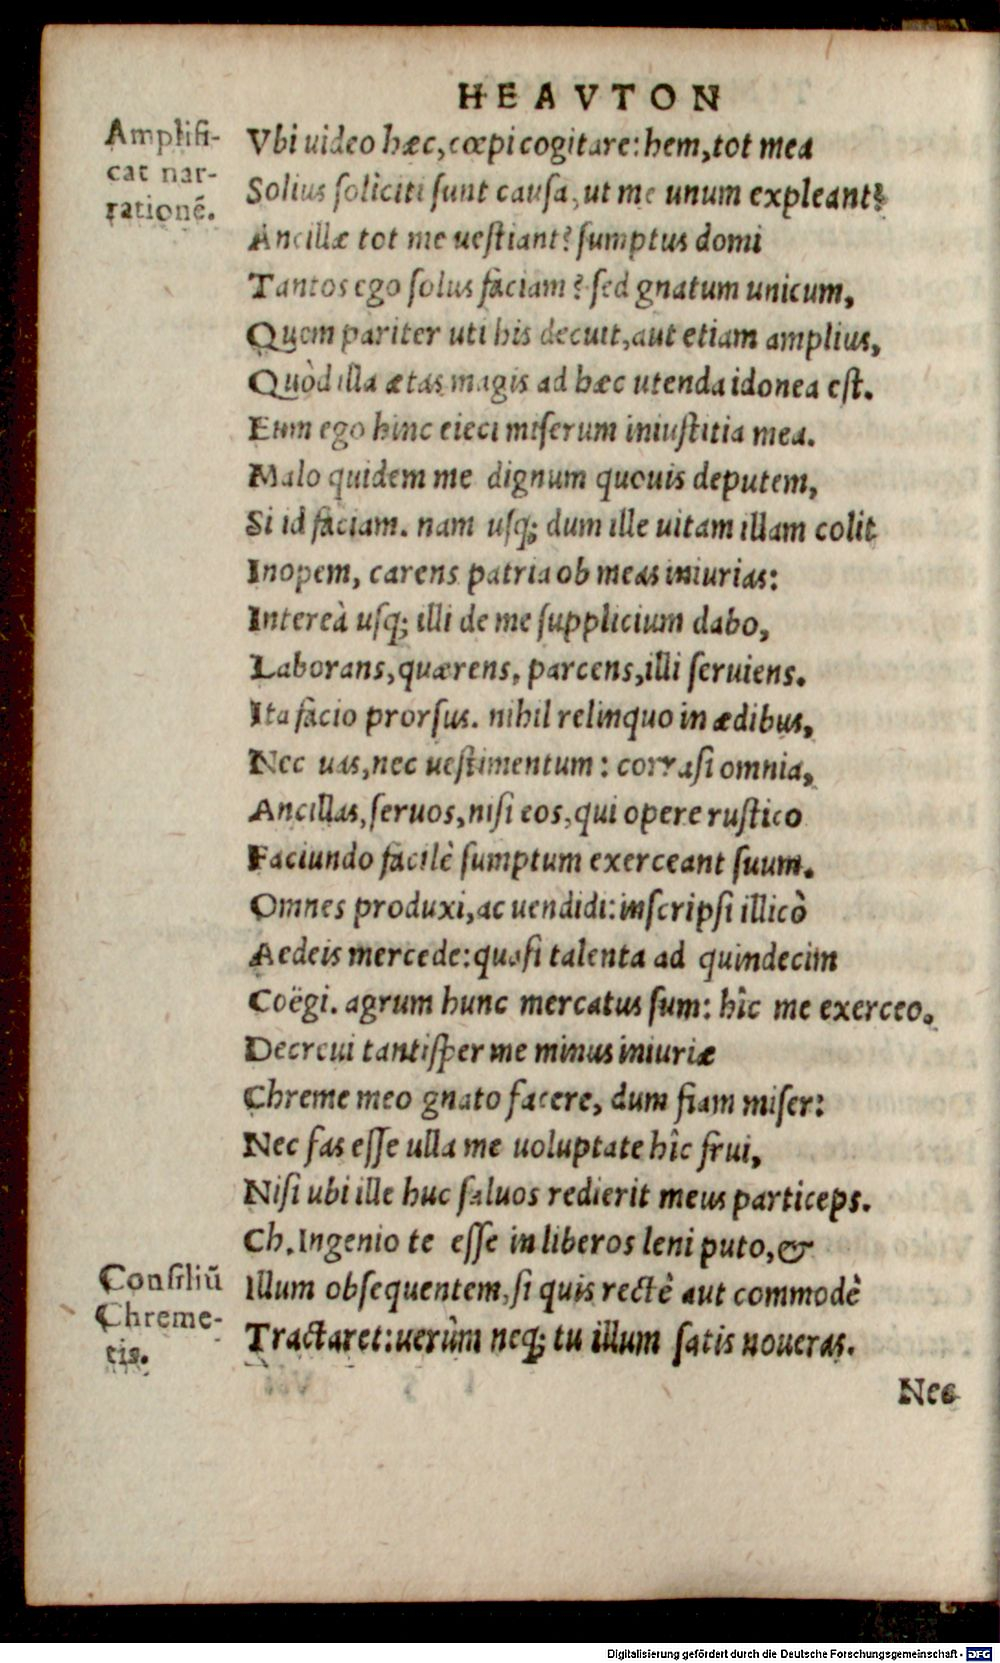 HEAVTON
Amplifi-
cat nar-
rationẽ.
Vbi uideo hæc, cœpi cogitare: hem, tot mea
Solius soliciti sunt causa, ut me unum expleant?
Ancillæ tot me uestiant? sumptus domi
Tantos ego solus faciam? sed gnatum unicum,
Quem pariter uti his decuit, aut etiam amplius,
Quòd illa ætas magis ad hæc utenda idonea est.
Eum ego hinc eieci miserum iniustitia mea.
Malo quidem me dignum quouis deputem,
Si id faciam. nam usq; dum ille uitam illam colit
Inopem, carens patria ob meas iniurias:
Intereà usq; illi de me supplicium dabo,
Laborans, quærens, parcens, illi seruiens.
Ita facio prorsus. nihil relinquo in ædibus,
Nec uas, nec uestimentum: corrasi omnia,
Ancillas, seruos, nisi eos, qui opere rustico
Faciundo facilè sumptum exerceant suum.
Omnes produxi, ac uendidi: inscripsi illicò
Aedeis mercede: quasi talenta ad quindecim
Coëgi. agrum hunc mercatus sum: hîc me exerceo.
Decreui tantisper me minus iniuriæ
Chreme meo gnato facere, dum fiam miser:
Nec fas esse ulla me uoluptate hîc frui,
Nisi ubi ille huc saluos redierit meus particeps.
Ch. Ingenio te esse in liberos leni puto, &
Consiliũ
Chreme-
tis.
Illum obsequentem, si quis rectè aut commodè
Tractaret: uerùm neq; tu illum satis noueras.
Nec
Digitalisierung gefördert durch die Deutsche Forschungsgemeinschaft - DFG